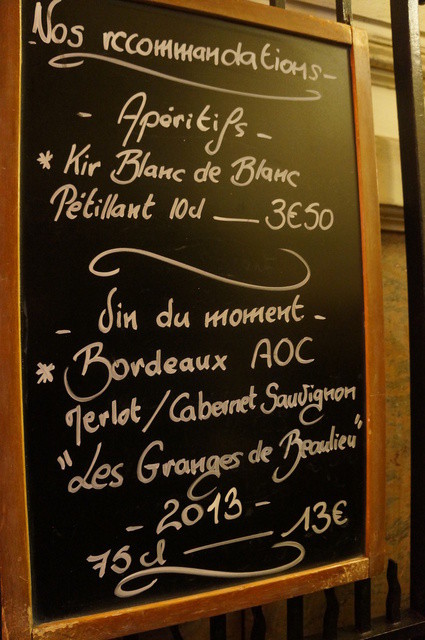 Nos recommandations
- Apéritifs -
* Kir Blanc de Blanc
Pétillant 10cl __ 3€50
- Vin du moment -
* Bordeaux AOC
Merlot / Cabernet Sauvignon
"Les Granges de Beaulieu"
- 2013 -
75 cl __ 13€